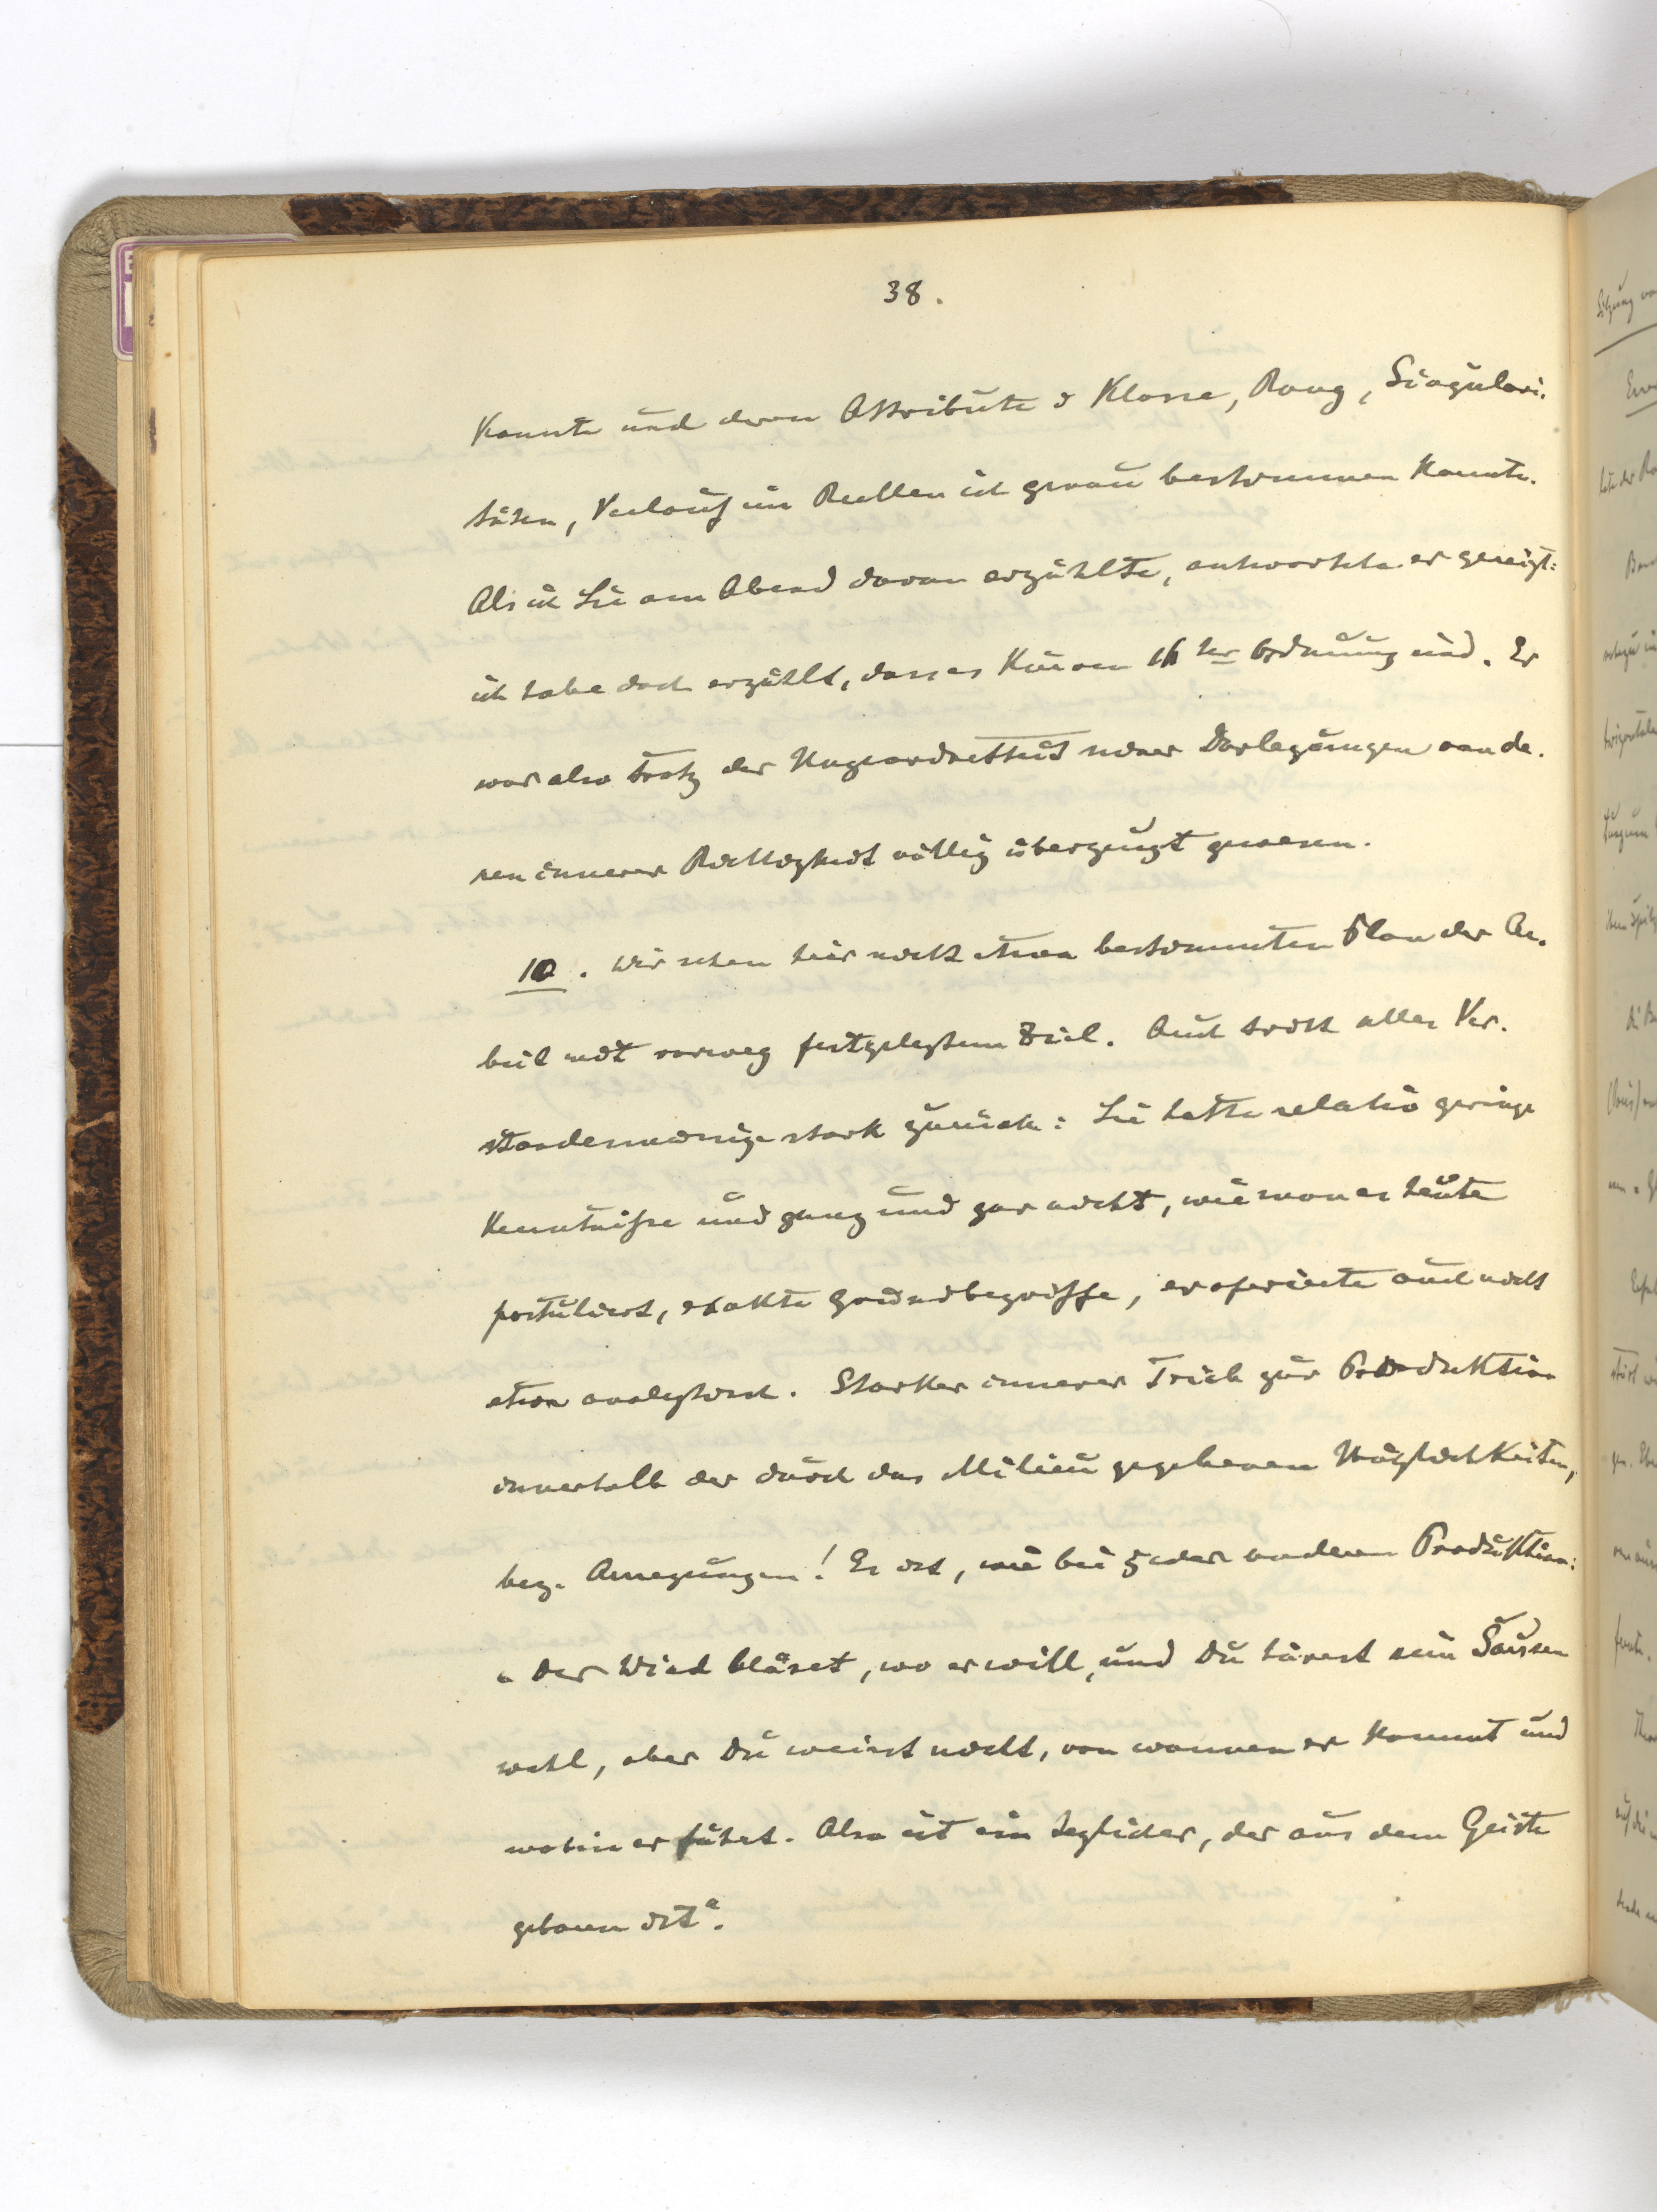 38.
kannte und deren Attribute d Klasse, Rang, Singulari-
täten, Verlauf im Reellen ich genau bestimmen konnte.
Als ich Lie am Abend davon erzählte, antwortete er gereizt:
ich habe doch erzählt, dass es Kurven 16 ter Ordnung sind. Er
war also trotz der Ungeordnetheit seiner Darlegungen von de-
ren innerer Richtigkeit völlig überzeugt gewesen.
10. Wir sehen hier nicht etwa bestimmten Plan der Ar-
beit mit vorweg festgelegtem Ziel. Auch tritt alles Ver-
standesmässige stark zurück: Lie hatte relativ geringe
Kenntnisse und ganz und gar nicht, wie man es heute
postuliert, exakte Grundbegriffe, er operierte auch nicht
etwa analytisch. Starker innerer Trieb zur Produktion
innerhalb der durch das Milieu gegebenen Möglichkeiten,
bez. Anregungen! Es ist, wie bei jeder anderen Produktion:
„Der Wind bläset, wo er will, und Du hörest sein Sausen
wohl, aber Du weisst nicht, von wannen er kommt und
wohin er fährt. Also ist ein Jeglicher, der aus dem Geiste
geboren ist“.